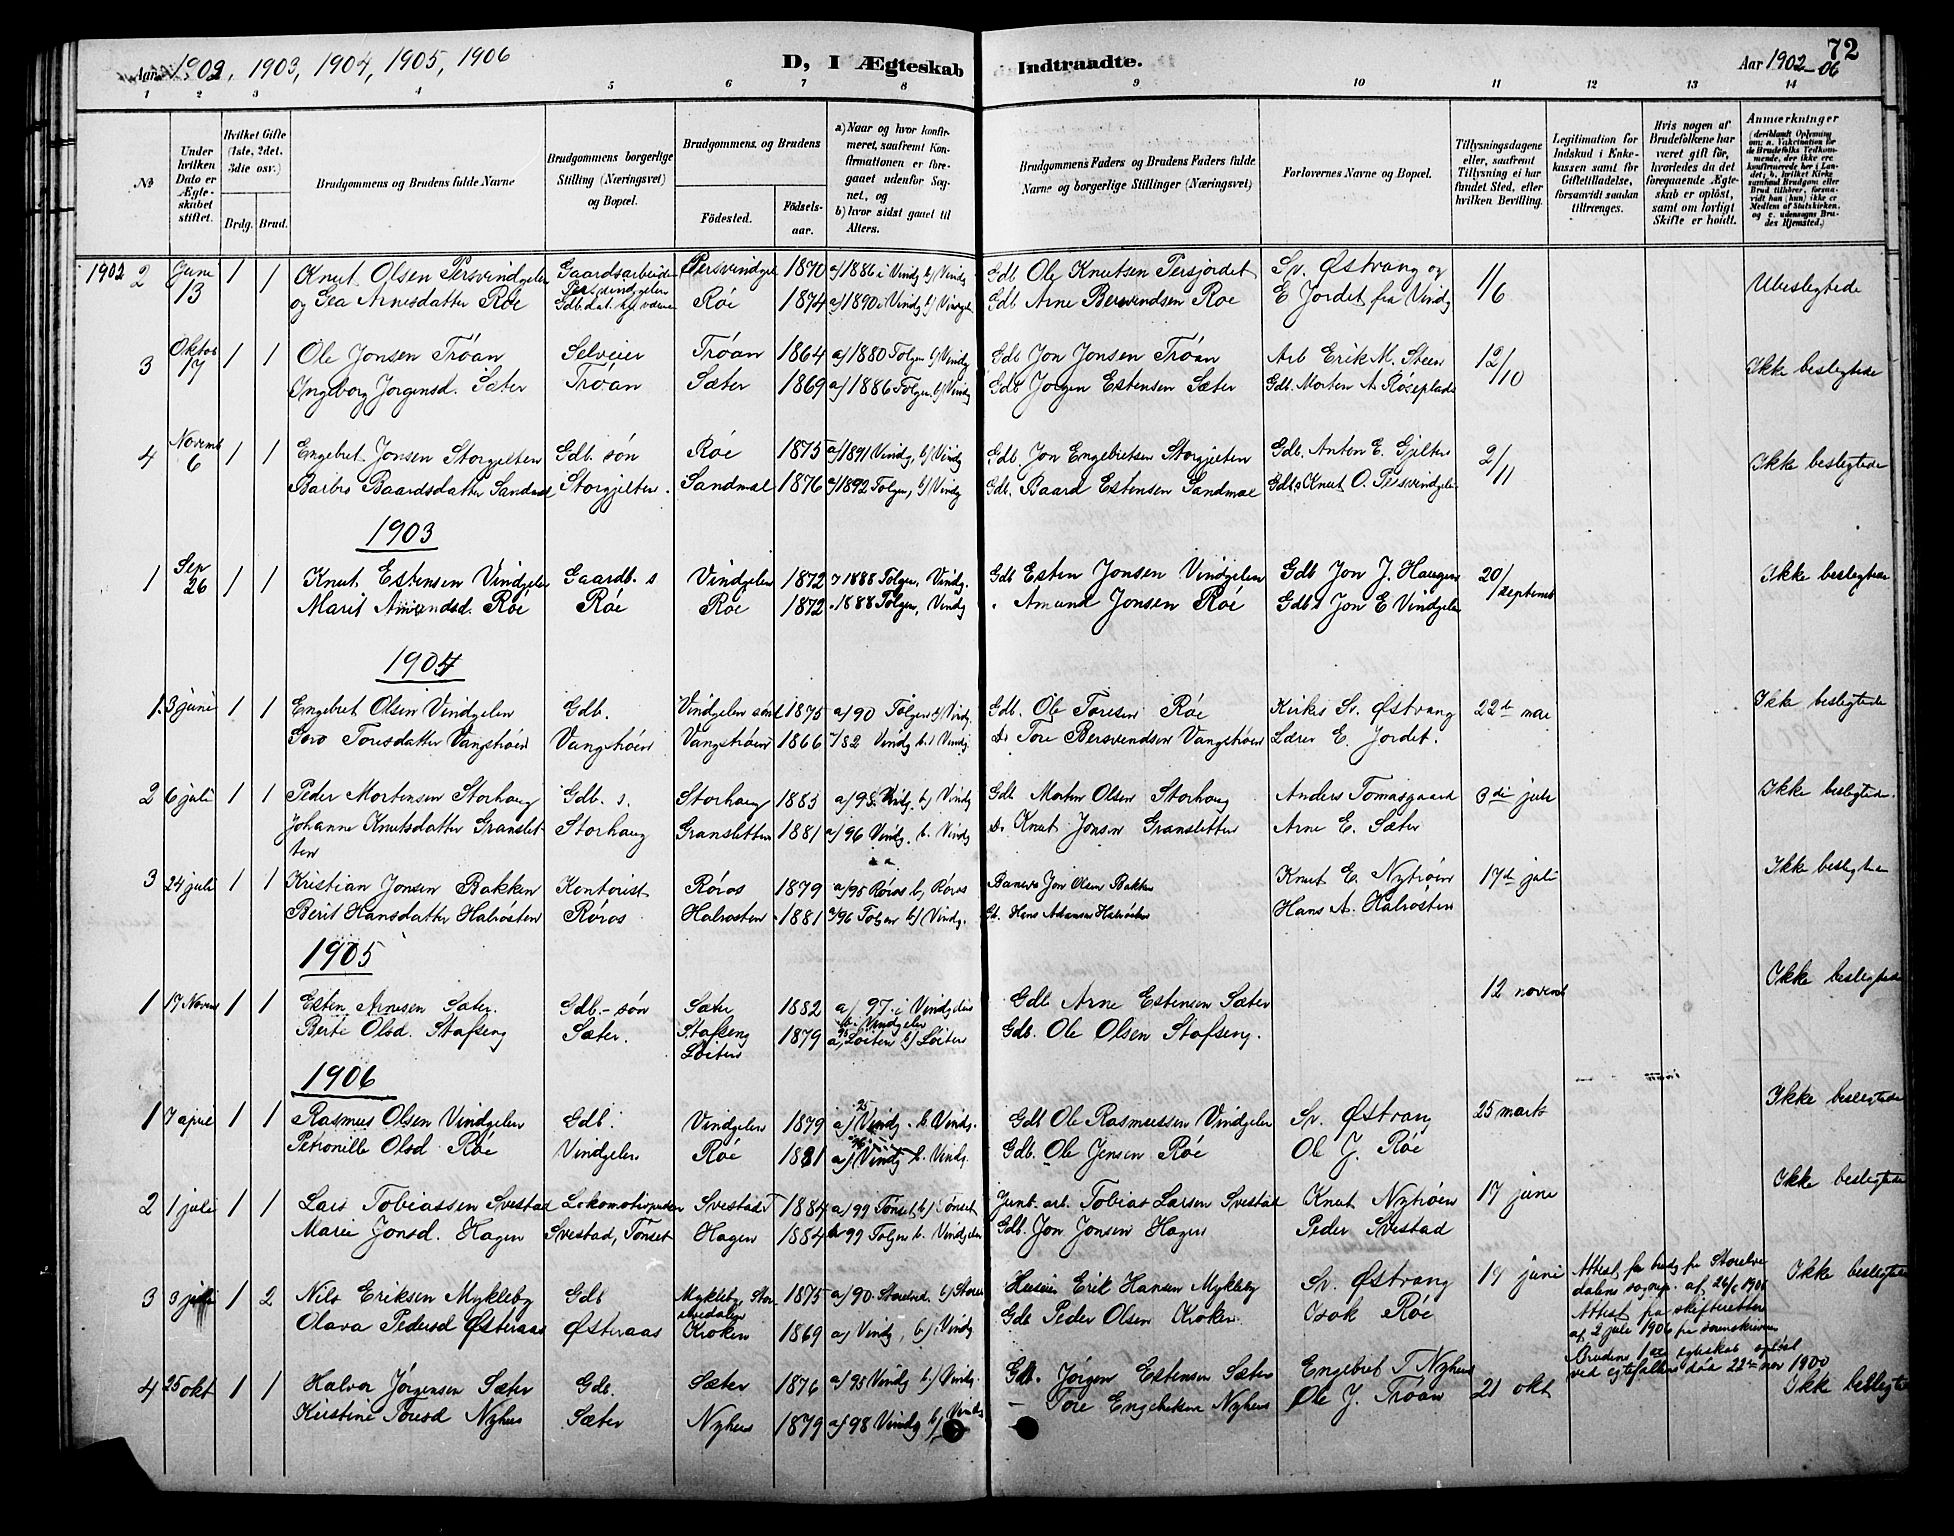 Aar 1902, 1903, 1904, 1905, 1906
D, I Ægteskab Indtraadte.
Aar 1902-06
72
1 2 3 4 5 6 7 8 9 10 11 12 13 14
No
Under hvilken Dato er Ægteskabet stiftet.
Hvilket Gifte (1ste, 2det, 3die osv.)
Brdg. Brud.
Brudgommens og Brudens fulde Navne
Brudgommens borgerlige Stilling (Næringsvei) og Bopæl.
Brudgommens og Brudens
Födested. Födselsaar.
a) Naar og hvor konfirmeret, saafremt Konfirmationen er foregaaet udenfor Sognet, og
b) hvor sidst gaaet til Alters.
Brudgommens Faders og Brudens Faders fulde Navne og borgerlige Stillinger (Næringsvei)
Forlovernes Navne og Bopæl.
Tillysningsdagene eller, saafremt Tillysning ei har fundet Sted, efter hvilken Bevilling.
Legitimation for Indskud i Enkekassen samt for Giftetilladelse, forsaavidt saadan tiltrænges.
Hvis nogen af Brudefolkene har været gift før, hvorledes da det foregaaende Ægteskab er opløst, samt om lovligt Skifte er holdt.
Anmærkninger
1902 2 Juni 13 1 1 Knut Olsen Persvindgelen Gaardsarbeider Persvindgel 1870 a) 1886 i Vindg b) Vindg Gdb Ole Knutsen Persjordet Sv. Østrang og 1/6 Ubeslegtede
og Gea Arnesdatter Røe Røe 1874 a) 1890 i Vindg b) Vindgel Gdb Arne Bersvendsen Roe E Jordet fra Vindg
3 Oktob 17 1 1 Ole Jonsen Trøan Selveier Trøan 1864 a) 1880 Tolgen b) Vindg Gdb Jon Jonsen Trøan Arb Erik M. Steen 12/10 Ikke beslegtede
Ingeborg Jørgensd. Sæter Trøan Sæter 1869 a) 1886 Tolgen b) Vindg Gdb Jørgen Estensen Sæter Gdb. Morten A Røseplads
4 Novemb 6 1 1 Engebret Jonsen Storgjelten Gdb. søn Røe 1875 a) 1891 Vindg, b) Vindg Gdb. Jon Engebretsen Storgjelten Gdb. Anton E. Gjelten 2/11 Ikke beslegtede
Barbro Baardsdatter Sandmæl Storgjelten. Sandmæl 1876 a) 1892 Tolgen, b) Vindg Gdb. Baard Estensen Sandmæl Gdbs Knut O. Persvindgelen
1903
1 Sep 26 1 1 Knut Estensen Vindgelen Gaardb. s Vindgelen 1872 1888 Tolgen, Vindg. Gdb Esten Jonsen Vindgelen Gdb Jon J. Haugen 20/septemb Ikke beslegtede
Marit Amundsd. Røe Røe Roe 1872 1888 Tolgen, Vindg Amund Jonsen Røe Gdbs Jon E Vindgelen
1904
1. 3 juni 1 1 Engebret Olsen Vindgelen Gdb. Vindgelen 1875 a) 90 Tolgen b) Vindg. Gdb. Ole Toresen Røe Kirkes Sv. Østrang 22de mai Ikke beslegtede
Goro Toresdatter Vangshøen Vangshøen Vangshøen 1866 82 Vindg b. Vindg. Do Tore Bersvendsen Vangshøen Lærer E. Jordet.
2 6 juli 1 1 Peder Mortensen Storhaug Gdb. s. Storhaug 1883 a) 98 Vindg. b) Vindg Gdb Morten Olsen Storhaug Anders Tomasgaard 3die juli Ikke beslegtede.
Johanne Knutsdatter Granslet Storhaug Gransletten 1881 a) 96 Vindg. b. Vindg Do Knut Jonsen Gransletten Arne E. Sæter
ten
3 24 juli 1 1 Kristian Jonsen Bakken Kontorist Røros 1879 a) 95 Røros b) Røros Jon Olsen Bakken Knut E. Nytrøen 17de juli Ikke beslegtede
Berit Hansdatter Halvosten Røros Halvosten 1881 96 Tolgen b) Vindg. Gb. Hans Adamsen Halvosten Hans A. Halvosten
1905
1 17 Novem 1 1 Esten Arnesen Sæter. Gdb.-søn Sæter 1882 a) 97 i Vindgelen Gdb Arne Estensen Sæter 12 novemb Ikke beslegtede
b. Vindgelen
Berte Olsd. Stafseng Sæter. Stafseng 1879 a) Løiten b) Løiten Gdb. Ole Olsen Stafseng.
Løiten
1906
1 7 april 1 1 Rasmus Olsen Vindgelen Gdb. Vindgelen 1879 a) Vindg. b. Vindg. Gdb Ole Rasmussen Vindgelen Sv. Østrang 25 marts Ikke beslegtede
Petronille Olsd Røe Vindgelen Røe 1881 a) Vindg b. Vindg. Gdb. Ole Jensen Røe Ol J. Røe
2 1 juli 1 1 Lars Tobiassen Svestad Lokomotivpudser Svestad 1884 a) 99 Tønset b) Tønset Jernb. arb. Tobias Larsen Svestad Knut Nytrøen 17 june Ikke beslegtede
Marie Jonsd. Hagen Svestad, Tønset Hagen 1884 99 Tolgen b. Vindgelen Gdb. Jon Jonsen Hagen Peder Svestad
3 3 juli 1 2 Nils Eriksen Mykleby Gdb Mykleby Stor 1875 a) 90 Storelvd. b) Storel Erik Hansen Mykleby Sv. Østrang 17 juni Attest fra fra Storelve Ikke beslegtede
elvedalen dalens sogepr. af 26/6 1906
Olava Pedersd Østeraas Østeraas Kroken 1869 a) Vindg, b.) Vindg Gdb Peder Olsen Kroken Isak Røe Attest fra skifteretten
af 2 juli 1906 fra sorenskriveren
Brudens 1ste egteskab opløst
ved egtefællens død 22de nov 1900
4 25 okt 1 1 Halvor Jørgensen Sæter Gdb. Sæter 1876 a) 93 Vindg b) Vindg. Gdb. Jørgen Estensen Sæter Engebret T Nyhus 21 okt Ikke beslegtede
Kirstine Toresd Nyhus Sæter Nyhus 1879 a) 98 Vindg b) Vindg Tore Engebretsen Nyhus Ole J. Trøan